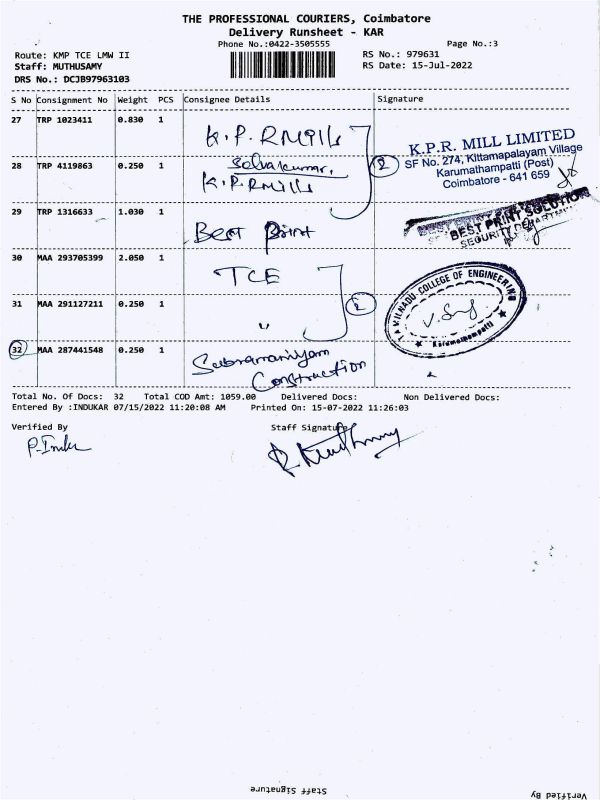 THE PROFESSIONAL COURIERS, Coimbatore
Delivery Runsheet - KAR
Phone No.:0422-3505555 Page No.:3
Route: KMP TCE LMW II RS No.: 979631
Staff: MUTHUSAMY RS Date: 15-Jul-2022
DRS No.: DCJB97963103
S No Consignment No Weight PCS Consignee Details Signature
27 TRP 1023411 0.830 1 K.P.R Mills
K.P.R. MILL LIMITED
SF No. 274, Kittamapalayam Village
Karumathampatti (Post)
Coimbatore - 641 659
28 TRP 4119863 0.250 1 Selvakumar,
K.P.R Mills
2
29 TRP 1316633 1.030 1 Best Print
BEST PRINT SOLUTION
SECURITY DEPARTMENT
30 MAA 293705399 2.050 1 TCE
TAMILNADU COLLEGE OF ENGINEERING
Karumathampatti
31 MAA 291127211 0.250 1 "
2
32 MAA 287441548 0.250 1 Subramaniyam
Construction
Total No. Of Docs: 32 Total COD Amt: 1059.00 Delivered Docs: Non Delivered Docs:
Entered By :INDUKAR 07/15/2022 11:20:08 AM Printed On: 15-07-2022 11:26:03
Verified By Staff Signature
P. Indu
Staff Signature Verified By